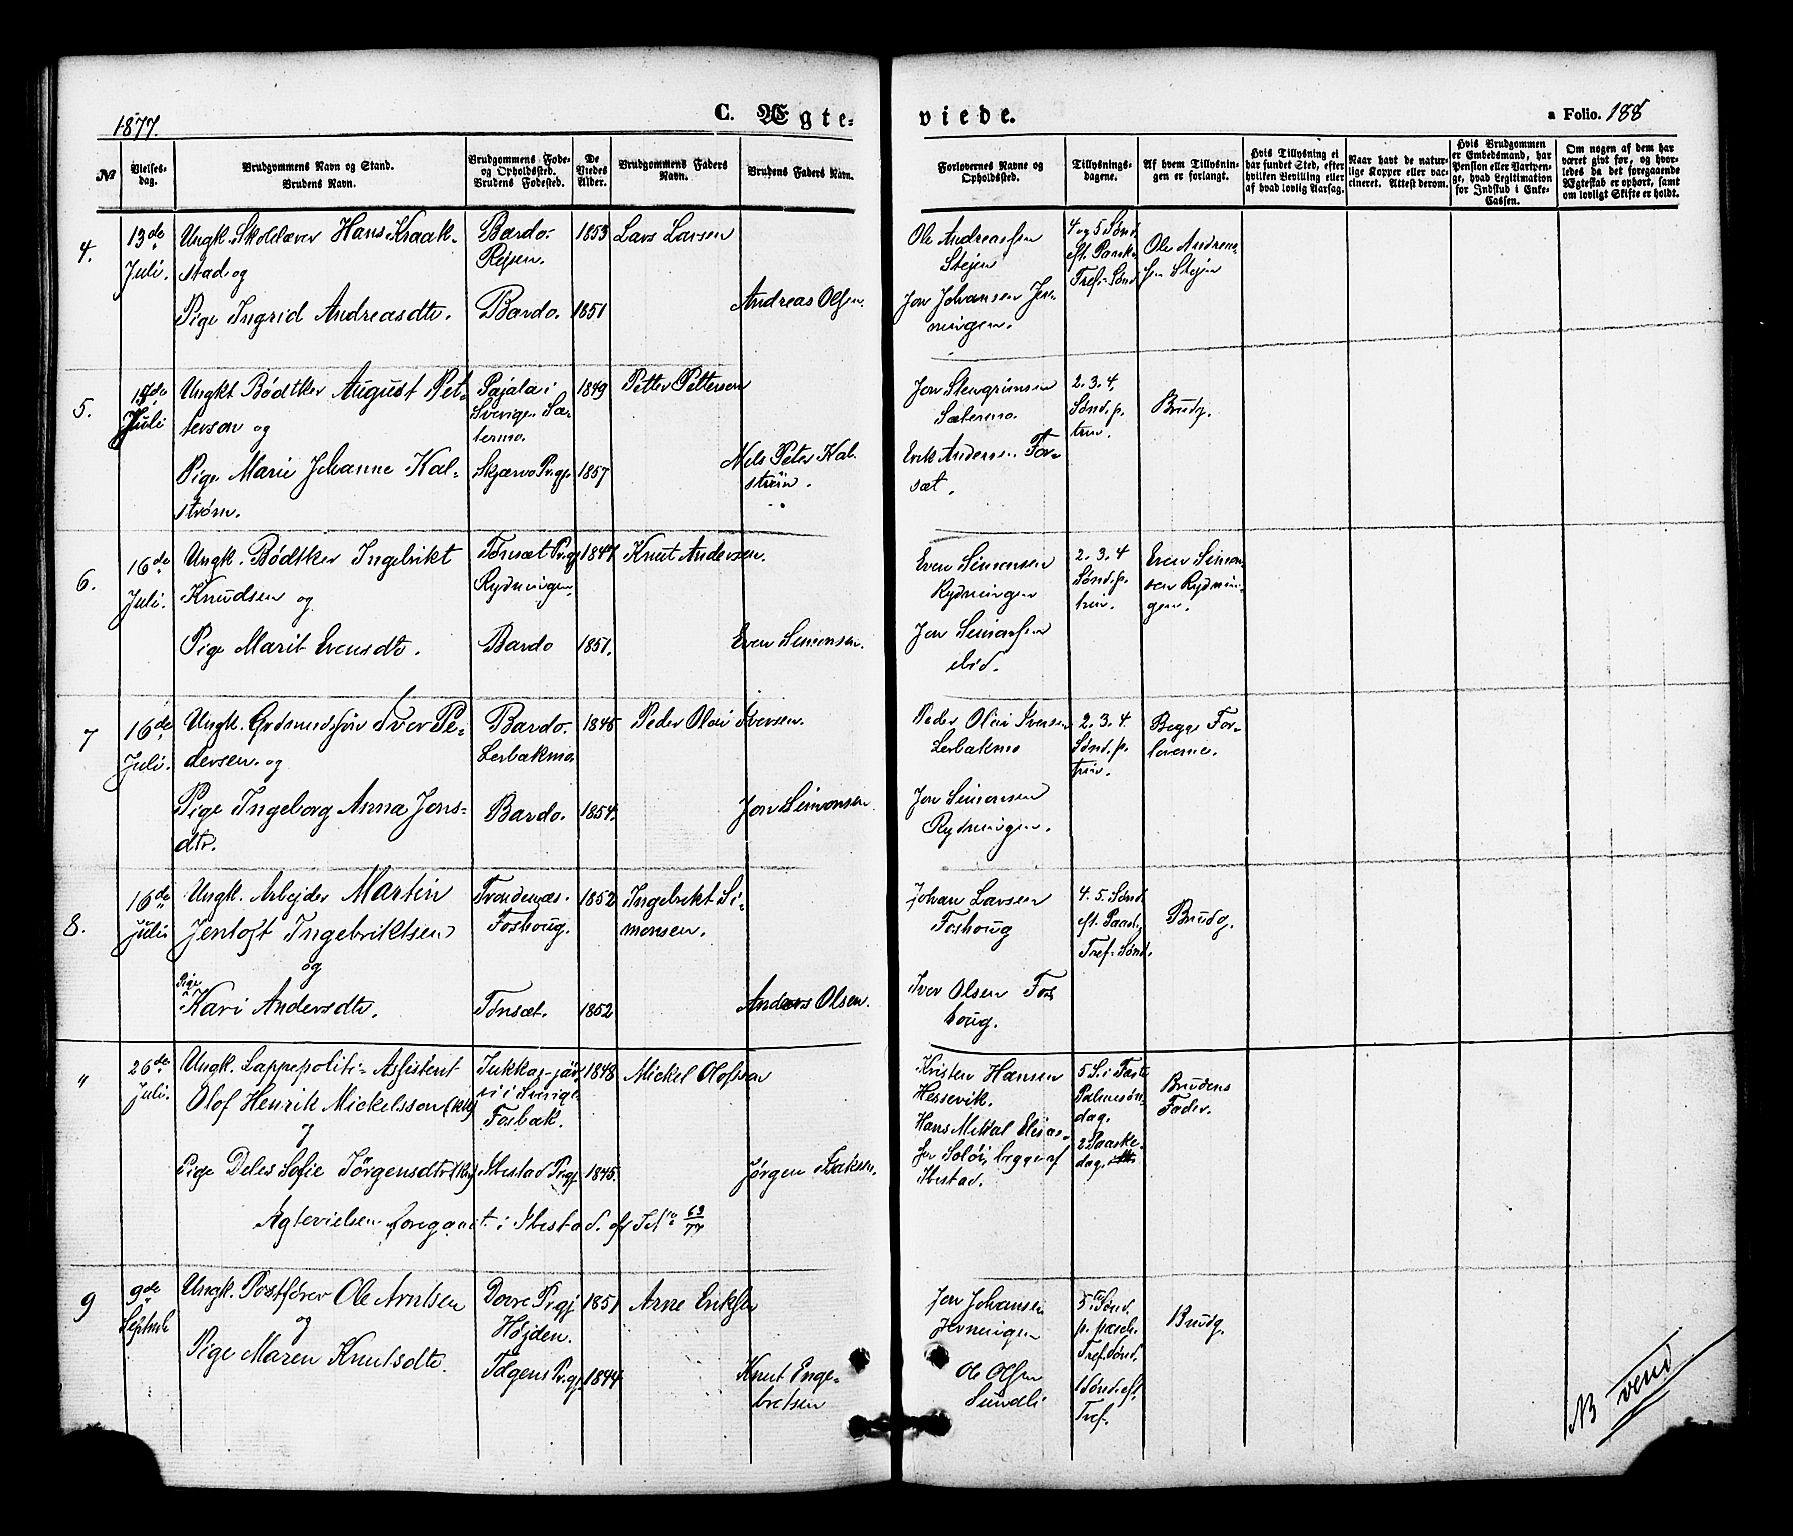 1877.
C. Ægte-
viede.
a Folio. 188
№
Vielses-
dag.
Brudgommens Navn og Stand.
Brudens Navn.
Brudgommens Føde-
og Opholdssted.
Brudens Fødested.
De
Viedes
Alder.
Brudgommens Faders
Navn.
Brudens Faders Navn.
Forlovernes Navne og
Opholdssted.
Tillysnings-
dagene.
Af hvem Tillysnin-
gen er forlangt.
Hvis Tillysning ei
har fundet Sted, efter
hvilken Bevilling eller
af hvad lovlig Aarsag.
Naar havt de natur-
lige Kopper eller vac-
cineret. Attest derom.
Hvis Brudgommen
er Embedsmand, har
Pension eller Vartpen-
ge, hvad Legitimation
for Indskud i Enke-
Cassen.
Om nogen af dem har
været gift før, og hvor-
ledes da det foregaaende
Ægteskab er ophørt, samt
om lovligt Skifte er holdt.
4.
13de
Juli.
Ungk. Skolelærer Hans Kraak-
stad og
Pige Ingrid Andreasdtr.
Bardo-
Rejsen.
Bardo.
1853
1851
Lars Larsen
Andreas Olsen.
Ole Andreassen
Stejen
Jon Johansen Jer-
ningen.
4 og 5 Sønd.
eft. Paaske
Tref. Sønd
Ole Andreas-
sen Stejen
5.
Juli
Ungkt. Bødtker August Pet-
terson og
Pige Marie Johanne Kal-
strøm.
Pajala i
Sverige. Sæ-
termo.
Skjærvø Prgj.
1849
1857
Petter Petterson
Nels Peter Kal-
strøm.
Jon Stengrimsen
Sætermo.
Erik Andersen For-
sæt.
2. 3. 4.
Sønd. p.
trin.
Brudg.
6.
16de
Juli.
Ungk. Bødtker Ingebrikt
Knudsen og
Pige Marit Evensdtr.
Tønsæt Prgj
Rydningen.
Bardo
1847
1851.
Knut Andersen.
Even Simonsen.
Even Simonsen
Rydningen
Jon Simonsen
ibid.
2. 3. 4
Sønd. p.
trin.
Even Simon-
sen Rydnin-
gen.
7
16de
Juli.
Ungk. Grdmandssøn Iver Pe-
dersen. og
Pige Ingeborg Anna Jons-
dtr.
Bardo.
Lerbakmo.
Bardo.
1845
1854.
Peder Olai Iversen.
Jon Simonsen.
Peder Olai Iversen
Lerbakmo
Jon Simonsen
Rydningen.
2. 3. 4
Sønd. p.
trin.
Begge For-
loverne.
8.
16de
Juli
Ungk. Arbejder Martin
Jentoft Ingebriktsen
og
Pige
Kari Andersdtr.
Trondenæs.
Foshoug.
Tønsæt.
1852
1852
Ingebrikt Si-
monsen.
Anders Olsen.
Johan Larsen
Foshoug
Iver Olsen Fos
houg.
4. 5. Sønd.
eft. Paask.
Tref. Sønd.
Brudg.
"
26de
Juli.
Ungk. Lappepoliti-Assistent
Olof Henrik Mickelsson
og
Pige Deles Sofie Jørgensdtr
Jukkasjär-
vi i Sverige
Fosbak.
Ibestad Prgj
1848
1845.
Mickel Olofsson
Jørgen Isaksen.
Ægtevielsen foregaaet i Ibestad.
Kristen Hansen
Hessevik.
Hans Mikkal Elias-
sen Soløi, begge af
Ibestad.
5 S. i Faste
Palmesøn-
dag.
2 Paaske-
dag.
Brudens
Fader.
9
9de
Septemb
Ungk. Postfører Ole Arntsen
og
Pige Maren Knutsdtr.
Dovre Prgj
Højden.
Tolgens Prgj.
1851
1844
Arne Eriksen
Knut Enge-
bretsen
Jon Johansen
Jerningen
Ole Olsen
Sundli
5 Sønd.
p. pasch.
Tref. Sønd.
1 Sønd. eft.
Tref.
Brudg.
NB vend